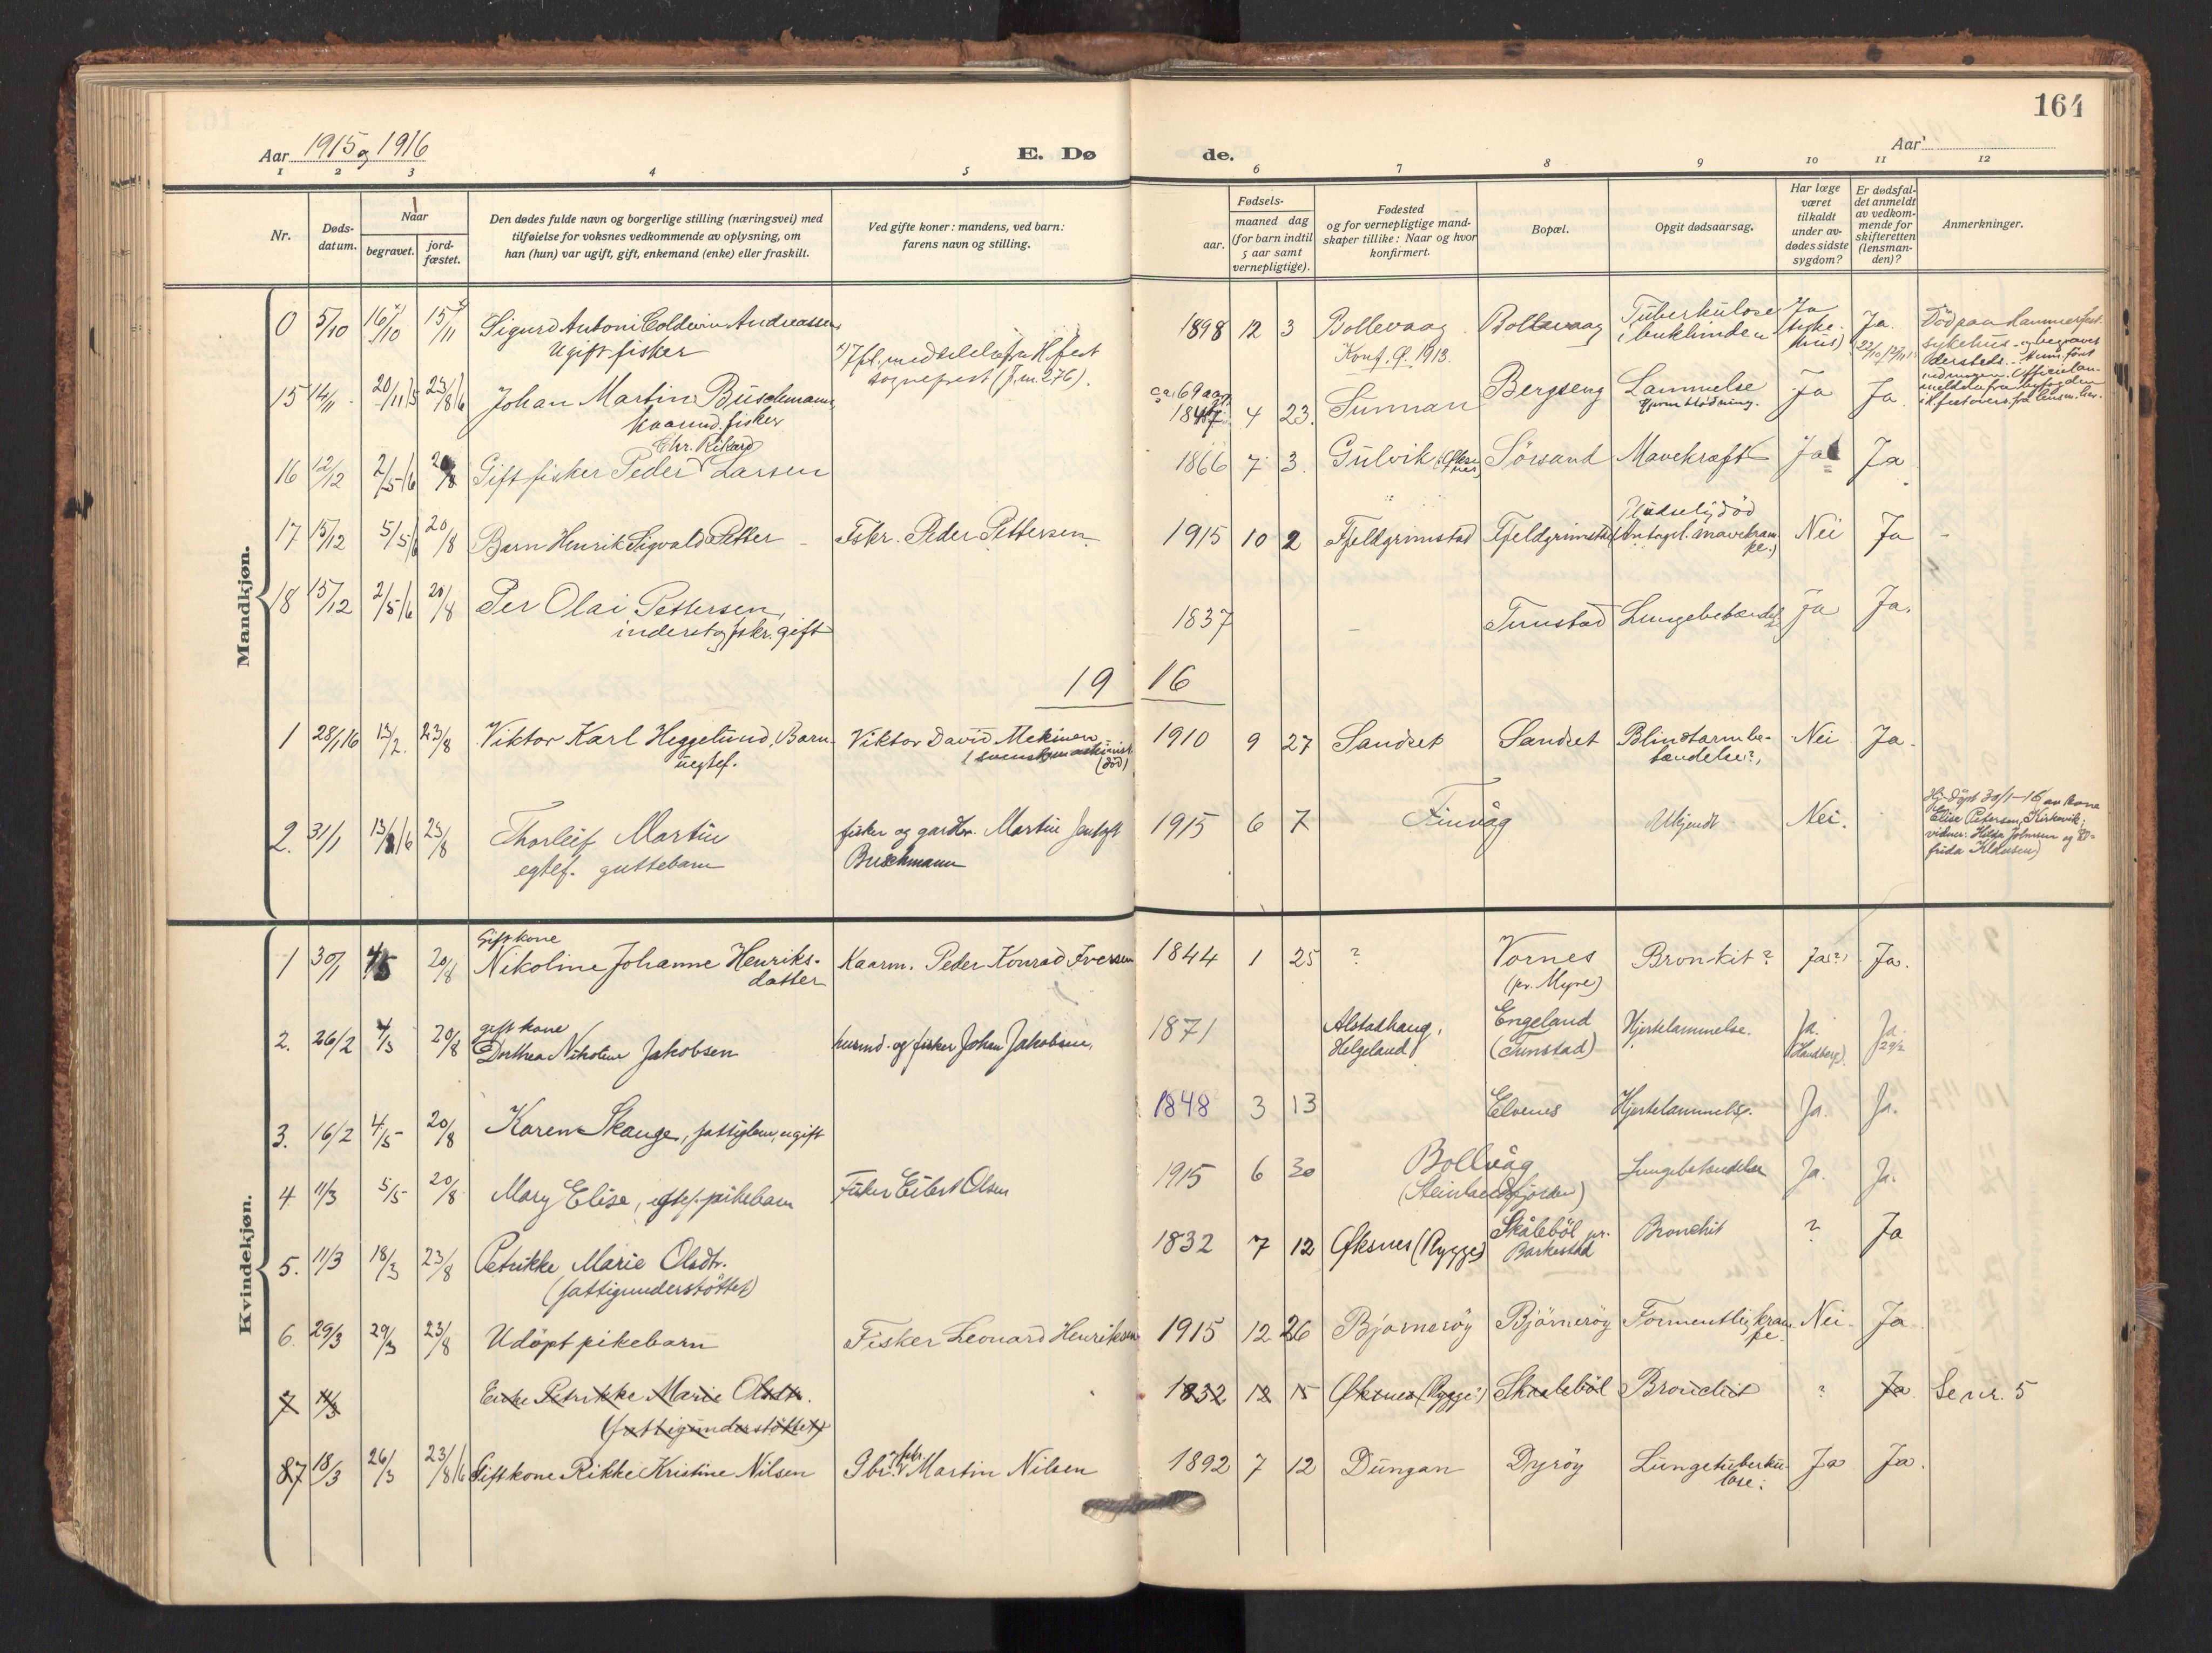 164
Aar 1915 og 1916
E. Dø
de.
Aar
1 2 3 4 5 6 7 8 9 10 11 12
Nr.
Døds-
datum.
Naar
begravet.
jord-
fæstet.
Den dødes fulde navn og borgerlige stilling (næringsvei) med
tilføielse for voksnes vedkommende av oplysning, om
han (hun) var ugift, gift, enkemand (enke) eller fraskilt.
Ved gifte koner: mandens, ved barn:
farens navn og stilling.
Fødsels-
aar.
maaned dag
(for barn indtil
5 aar samt
vernepligtige).
Fødested
og for vernepligtige mand-
skaper tillike: Naar og hvor
konfirmert.
Bopæl.
Opgit dødsaarsag.
Har læge
været
tilkaldt
under av-
dødes sidste
sygdom?
Er dødsfal-
det anmeldt
av vedkom-
mende for
skifteretten
(lensman-
den)?
Anmerkninger.
Mandkjøn.
0 5/10 16/10 15/11 Sigurd Antoni Coldevin Andreassen
Ugift fisker
Ifl. meddelelse fra H.fest
sogneprest (J.nr. 276).
1898 12 3 Bollevaag
Konf. Ø. 1913.
Bollevaag
Tuberkulose
i bukhinden
Ja
(syke-
hus)
Ja.
Død paa Hammerfest
sykehus og begravet
15 14/11 20/11 15 23/8 16 Johan Martin Buschmann,
kaarmd. fisker
ca 69 aar
1847 4 23. Sunnan Bergseng Lammelse
Hjerneblødning.
Ja Ja
Chr. Rikard
16 12/12 2/5 16 20/8 Gift fisker Peder Larsen
1866 7 3. Gulvik (Øksnes) Sørsand Mavekræft Ja Ja
17 15/12 5/5 16 20/8 Barn Henrik Sigvald Petter - Fskr. Peder Pettersen
1915 10 2 Fjeldgrimstad Fjeldgrimstad
Pludselig død
(Antagel. mavekram-
pe.)
Nei Ja -
18 15/12 2/5 16 20/8 Per Olai Pettersen,
inderst og fskr. gift
1837 - Tunstad Lungebetændelse Ja Ja.
19 16
1 28/1 16 13/2. 23/8 Viktor Karl Heggelund, Barn
uegtef.
Viktor David Mekinen
(svensk maskinist
(død)
1910 9 27 Sandset Sandset Blindtarmbe-
tændelse?,
Nei Ja.
2. 31/1 23/8 Thorleif Martin
egtef. guttebarn
fisker og gardbr. Martin Jentoft
Buschmann
1915 6 7 Finvåg Ukjendt Nei.
Hj.døpt 30/1-16 av kone
Elise Petersen, Kirkevik;
vidner: Helga Johnsen og El-
frida Klausen)
Kvindekjøn.
Gift kone
1 30/1 4/5 20/8 Nikoline Johanne Henriks-
datter
Kaarm. Peder Konrad Iversen
1844 1 25 ? Vornes
(pr. Myre)
Bronkit? Ja(?) Ja.
gift kone
2. 26/2 4/3 20/8 Dorthea Nikoline Jakobsen
husmd. og fisker Johan Jakobsen,
1871 Alstadhaug,
Helgeland
Engeland
(Tunstad)
Hjertelammelse. Ja.
(Sandberg)
Ja.
29/2
3. 16/2 4/5 20/8 Karen Skauge, fattiglem, ugift
1848 3 13 Elvenes Hjertelammelse. Ja. Ja.
4 11/3 5/5 20/8 Mary Elise, egtef. pikebarn Fisker Eilert Olsen
1915 6 30 Bollvåg
(Steinlandsfjorden)
Lungebetændelse Ja. Ja.
5. 11/3 18/3 23/8 Petrikke Marie Olsdtr.
(fattigunderstøttet)
1832 7 12 Øksnes (Rygge) Skålebøl pr.
Barkestad
Bronchit ? Ja
6. 29/3 29/3 23/8 Udøpt pikebarn Fisker Leonard Henriksen
1915 12 26 Bjørnerøy Bjørnerøy Formentlig kram-
pe.
Nei Ja
7 11/3 Enke Petrikke Marie Olsdtr.
(fattigunderstøttet)
1832 12 15 Øksnes (Rygge) Skaalebøl Bronchit ? Ja Se nr. 5
87 18/3 26/3 23/8 16 Gift kone Rikke Kristine Nilsen Gbr. fskr. Martin Nilsen
1892 7 12 Dungan Dyrøy Lungetuberku-
lose.
Ja Ja.